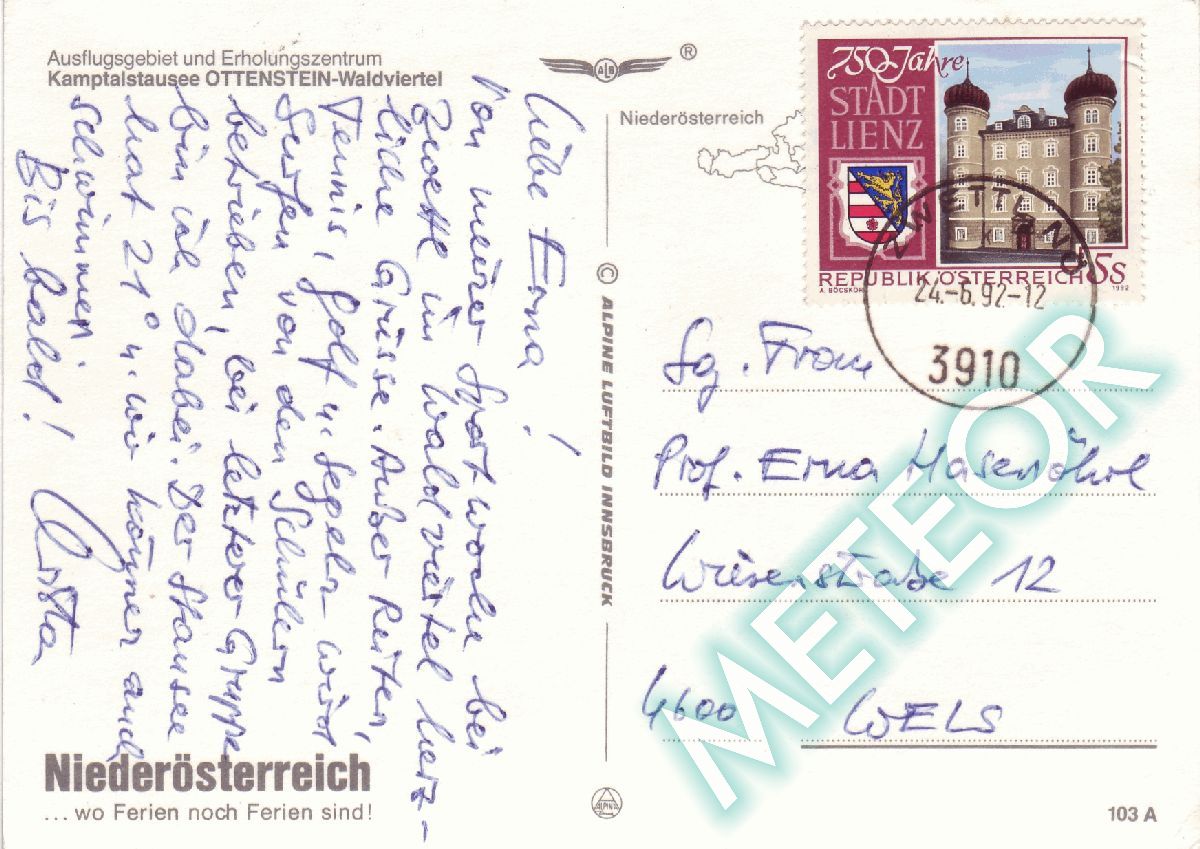 Ausflugsgebiet und Erholungszentrum
Kamptalstausee OTTENSTEIN-Waldviertel
Liebe Erna!
Von meiner Sportwoche bei
Zwettl im Waldviertel herz-
liche Grüsse. Außer Reiten,
Tennis, Golf u. Segeln wird
Surfen von den Schülern
betrieben, bei letzterer Gruppe
bin ich dabei. Der Stausee
hat 21° u. wir können auch
schwimmen.
Bis bald!
Niederösterreich
... wo Ferien noch Ferien sind!
ALB
®
Niederösterreich
© ALPINE LUFTBILD INNSBRUCK
ALPINE
750 Jahre
STADT
LIENZ
REPUBLIK ÖSTERREICH 5s
1992
ZWETTL NÖ
24.-6.92-12
3910
Sg. Frau
Prof. Erna Hasenöhrl
Wiesenstraße 12
4600 WELS
103 A
METEOR